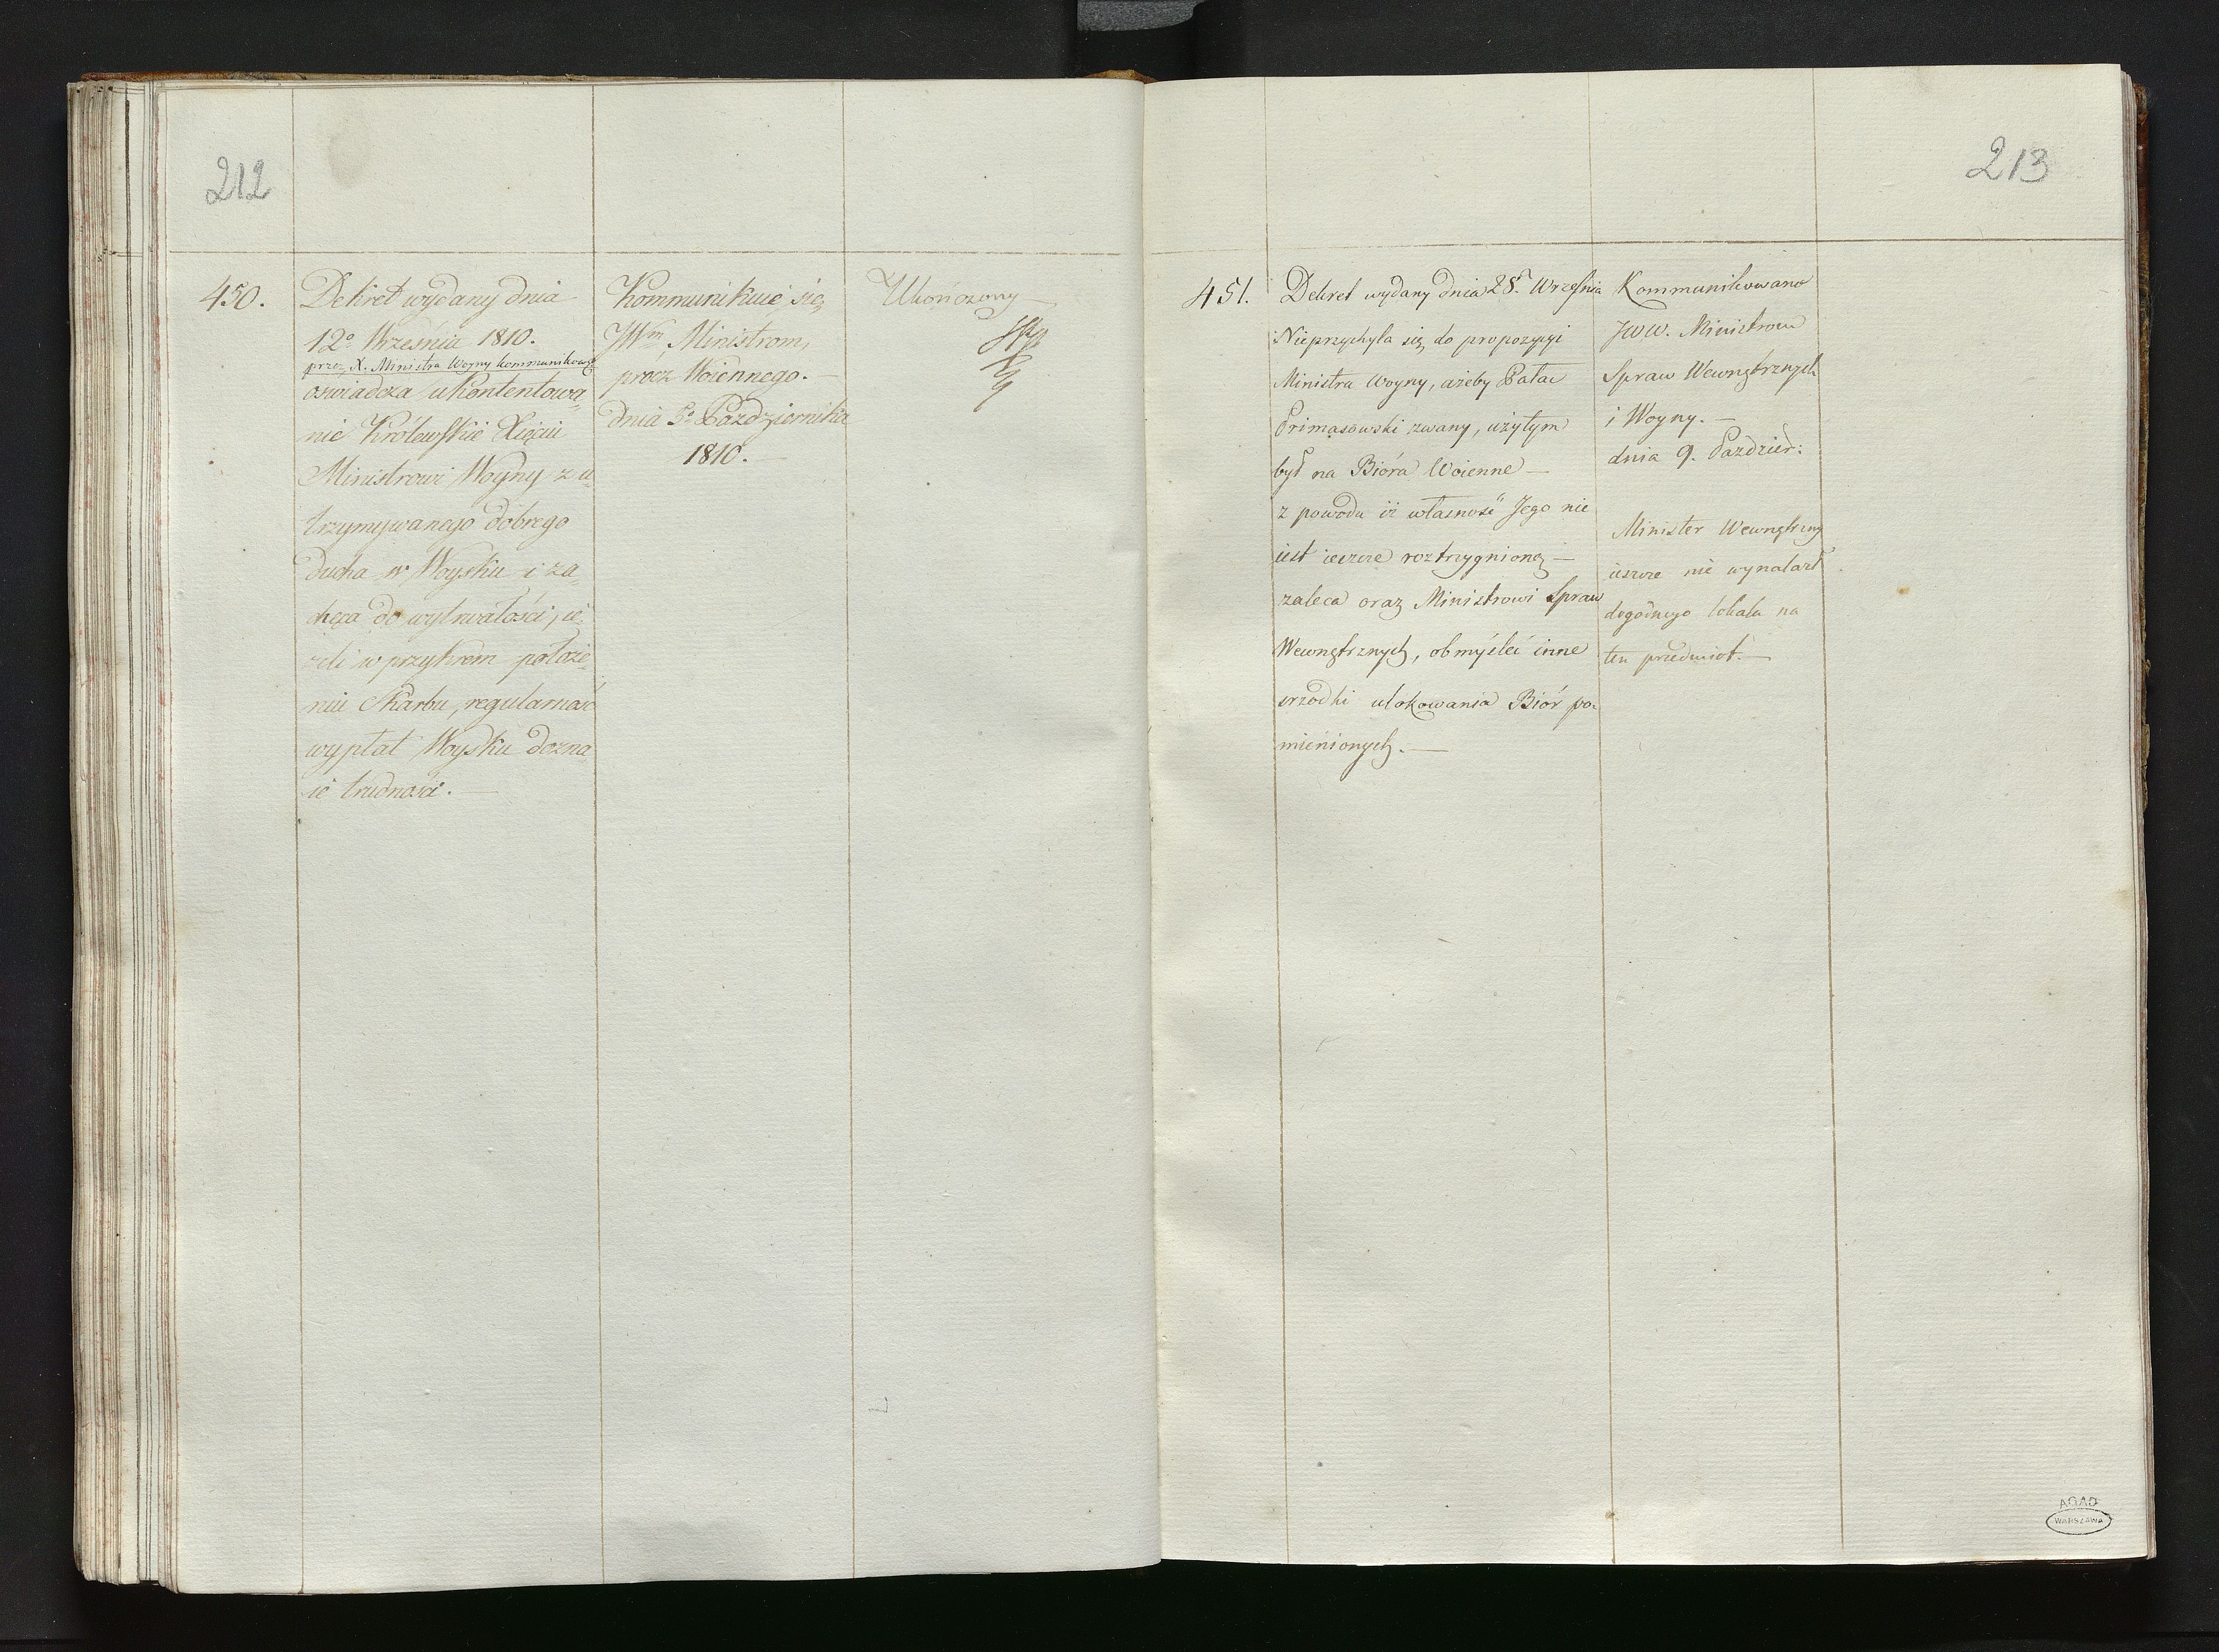 212
450.
Dekret wydany dnia
12º Września 1810.
przez X. Ministra Woyny kommunikowany
oswiadcza ukontentowa,
nie Krolewskie Xięciu
Ministrowi Woyny z u,
trzymywanego dobrego
ducha w Woysku i za,
chęca do wytrwałości, ie,
zeli w przykrem położe,
niu Skarbu, regularność
wypłat Woysku dozna,
ie trudności.
Kommunikuie się
JWm Ministrom,
procz Woiennego.
dnia 5º Pazdziernika
1810.
Ukończony
213
451.
Dekret wydany dnia 28. Września
Nieprzychyla się do propozycyi
Ministra Woyny, ażeby Pałac
Primasowski zwany, użytym
był na Bióra Woienne
z powodu iż własność Jego nie
iest ieszcze roztrzygnioną
zaleca oraz Ministrowi Spraw
Wewnętrznych, obmyśleć inne
srzodki ulokowania Biór po,
mienionych.
Kommunikowano
JWW. Ministrom
Spraw Wewnętrznych
i Woyny.
dnia 9. Pazdzier:
Minister Wewnętrzny
ieszcze nie wynalazł
dogodnego lokalu na
ten przedmiot.
AGAD
WARSZAWA